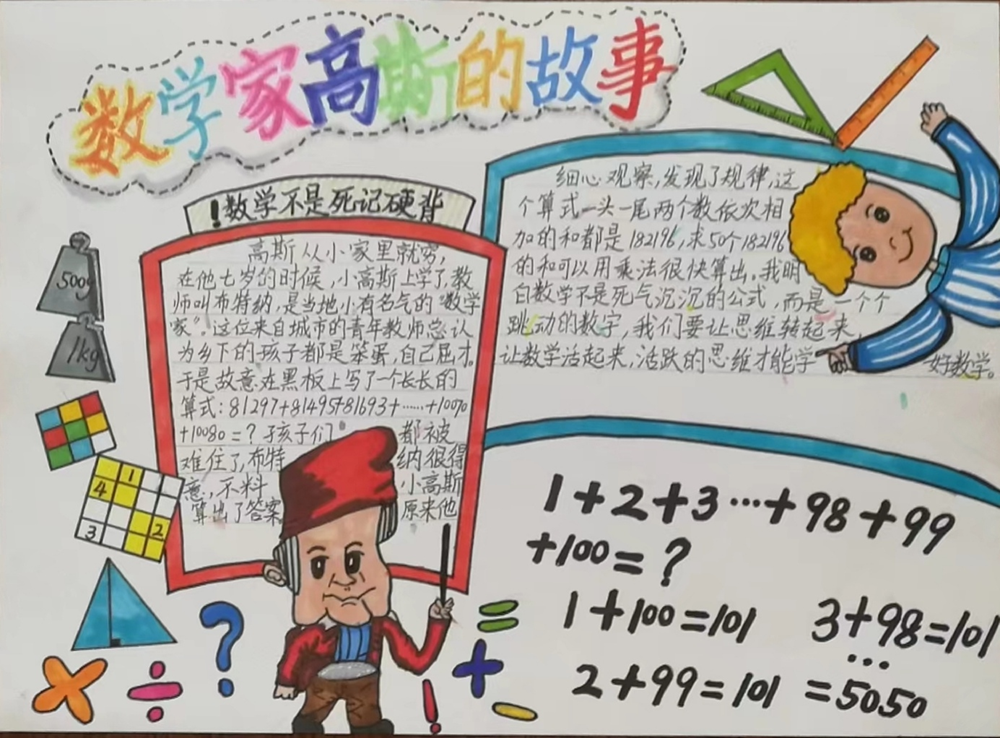 数学家高斯的故事
!数学不是死记硬背
高斯从小家里就穷,
在他七岁的时候,小高斯上学了,教
师叫布特纳,是当地小有名气的“数学
家”。这位来自城市的青年教师总认
为乡下的孩子都是笨蛋,自己屈才。
于是故意在黑板上写了一个长长的
算式:81297+81495+81693+……+10070
+10080=?孩子们都被
难住了,布特纳很得
意,不料小高斯
算出了答案原来他
细心观察,发现了规律,这
个算式一头一尾两个数依次相
加的和都是182196,求50个182196
的和可以用乘法很快算出。我明
白数学不是死气沉沉的公式,而是一个个
跳动的数字,我们要让思维转起来,
让数学活起来,活跃的思维才能学好数学。
500g
1kg
1
4
3
2
1+2+3…+98+99
+100=?
1+100=101 3+98=101
…
2+99=101 =5050
× ÷ ? ! = + −